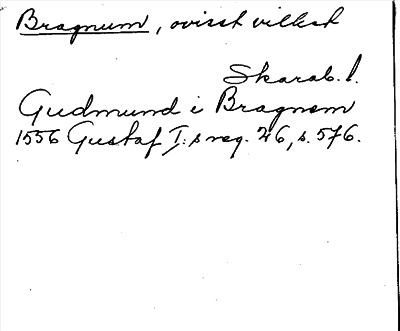 Bragnum, ovisst vilket
Skarab. l.
Gudmund i Bragnom
1556 Gustaf I:s reg. 26, s. 576.